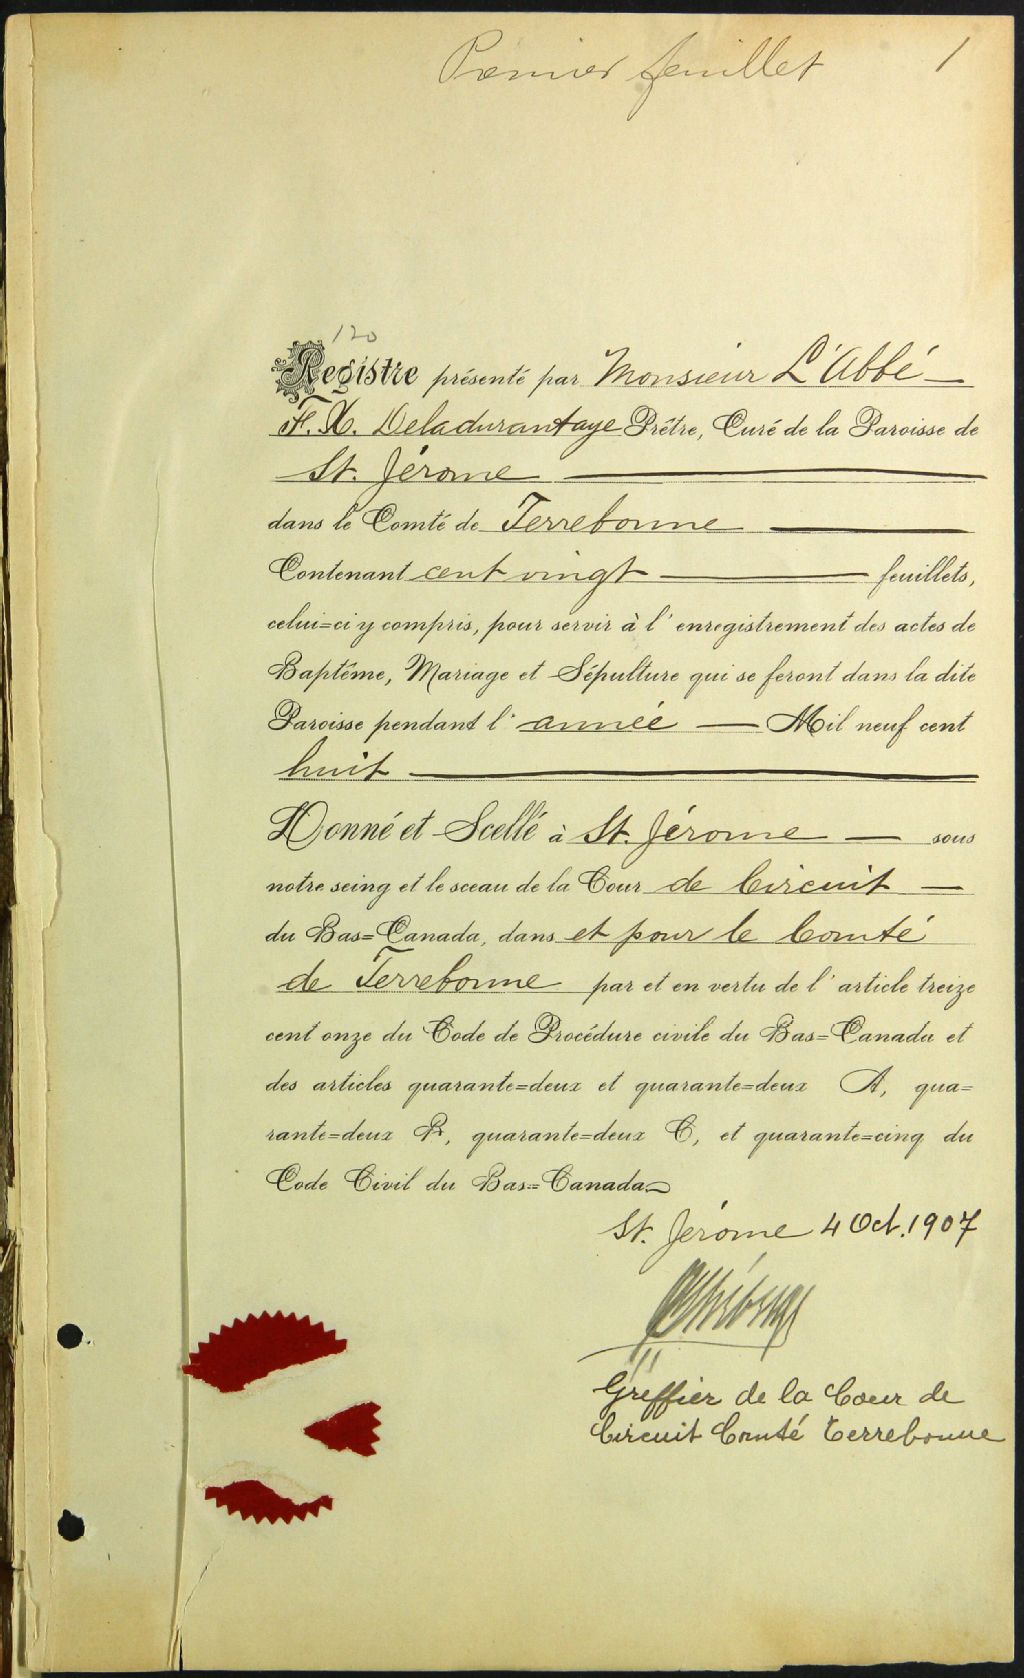 Premier feuillet 1
120
Registre présenté par Monsieur L'Abbé
F. X. Deladurantaye Prêtre, Curé de la Paroisse de
St. Jérome
dans le Comté de Terrebonne
Contenant cent vingt feuillets,
celui=ci y compris, pour servir à l'enregistrement des actes de
Baptême, Mariage et Sépulture qui se feront dans la dite
Paroisse pendant l'année Mil neuf cent
huit
Donné et Scellé à St. Jérome sous
notre seing et le sceau de la Cour de Circuit
du Bas=Canada, dans et pour le Comté
de Terrebonne par et en vertu de l'article treize
cent onze du Code de Procédure civile du Bas=Canada et
des articles quarante=deux et quarante=deux A, qua=
rante=deux B, quarante=deux C, et quarante=cinq du
Code Civil du Bas=Canada
St. Jérome 4 Oct. 1907
Greffier de la Cour de
Circuit Comté Terrebonne